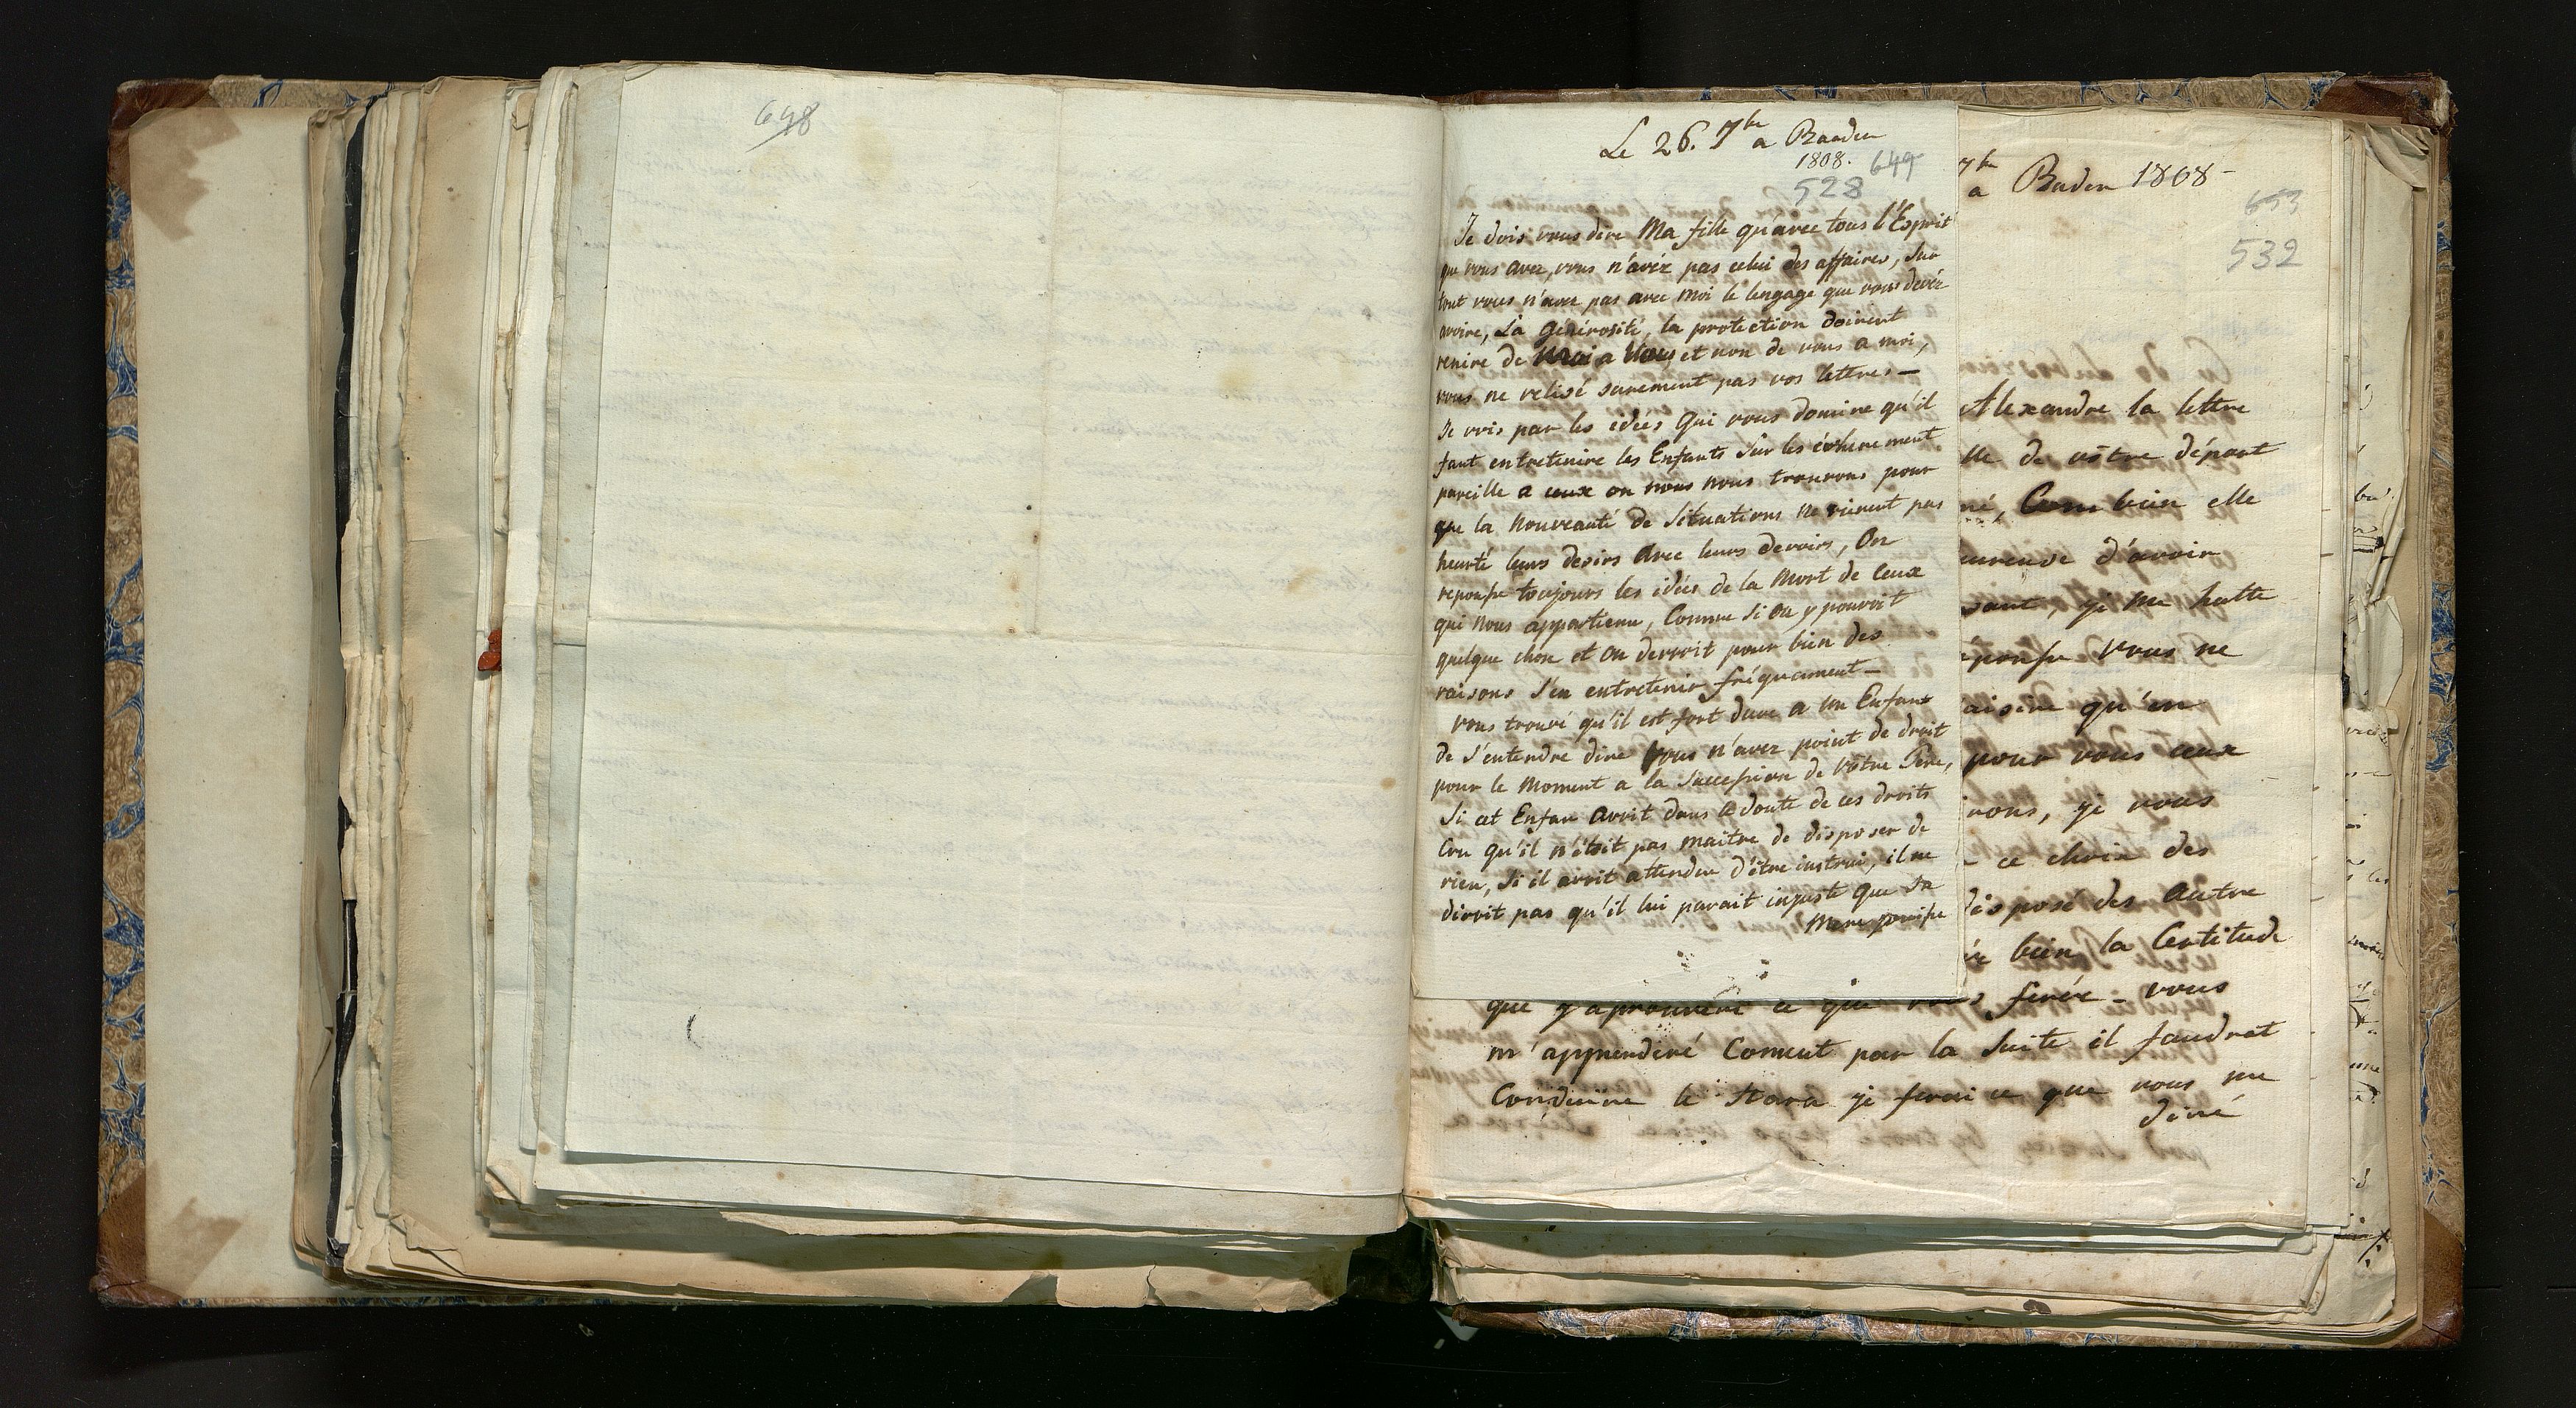 648
Le 26. 7bre a Baaden
1808. 649
528
Je dois vous dire Ma fille qu'avec tous l'Esprit
que vous avez, vous n'avéz pas celui des affaires, Sur
tout vous n'avez pas avec moi le lengage que vous devéz
avoire, La générosité, la protection doivent
venire de Moi a Vous, et non de vous a moi,
vous ne relisé surement pas vos lettres —
Je vois par les idées Qui vous domine qu'il
faut entretenire les Enfants Sur les évenement
pareille a ceux ou nous nous trouvons pour
que la Nouveauté de Situations ne vienent pas
heurté leurs desirs avec leurs devoirs, On
repousse toujours les idées de la Mort de Ceux
qui nous appartiene, Comme Si on y pouvoit
quelque chose et on devroit pour bien des
raisons S'en entretenir fréquament —
vous trouvé qu'il est fort dure a un Enfant
de S'entendre dire Vous n'avez point de droit
pour le Moment a la Succession de votre Pere,
Si cet Enfan avoit dans le doute de ces droits
Cru qu'il n'étoit pas maitre de disposer de
rien, Si il avoit attendu d'être instrui, il ne
diroit pas qu'il lui parait injuste que Sa
Mere puisse
7bre
a Baden 1808 -
653
532
Alexandre la lettre
lle de vôtre départ
né, Com bien elle
eureuse d'avoir
sant, je me hatte
éponse Vous ne
aisire qu'en
pour vous ceux
irons, je vous
ce choix des
disposé des autre
bien la Certitude
que y aprouverè ce que vous ferér - vous
m'apprendiré Coment par la Suite il faudrat
Conduire le Stara je ferai ce que vous me
diré